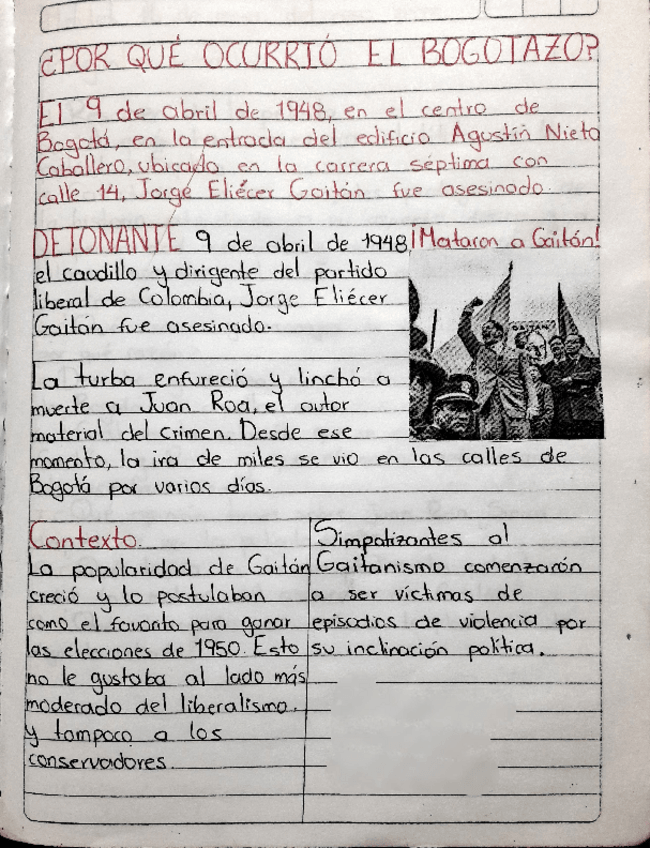 ¿POR QUÉ OCURRIÓ EL BOGOTAZO?
El 9 de abril de 1948, en el centro de
Bogotá, en la entrada del edificio Agustín Nieto
Caballero, ubicado en la carrera séptima con
calle 14, Jorge Eliécer Gaitán fue asesinado.
DETONANTE 9 de abril de 1948 ¡Mataron a Gaitán!
el caudillo y dirigente del partido
liberal de Colombia, Jorge Eliécer
Gaitán fue asesinado.
GAITAN
La turba enfureció y linchó a
muerte a Juan Roa, el autor
material del crimen. Desde ese
momento, la ira de miles se vio en las calles de
Bogotá por varios días.
Contexto.
La popularidad de Gaitán
creció y lo postulaban
como el favorito para ganar
las elecciones de 1950. Esto
no le gustaba al lado más
moderado del liberalismo.
y tampoco a los
conservadores.
Simpatizantes al
Gaitanismo comenzarón
a ser víctimas de
episodios de violencia por
su inclinación política.